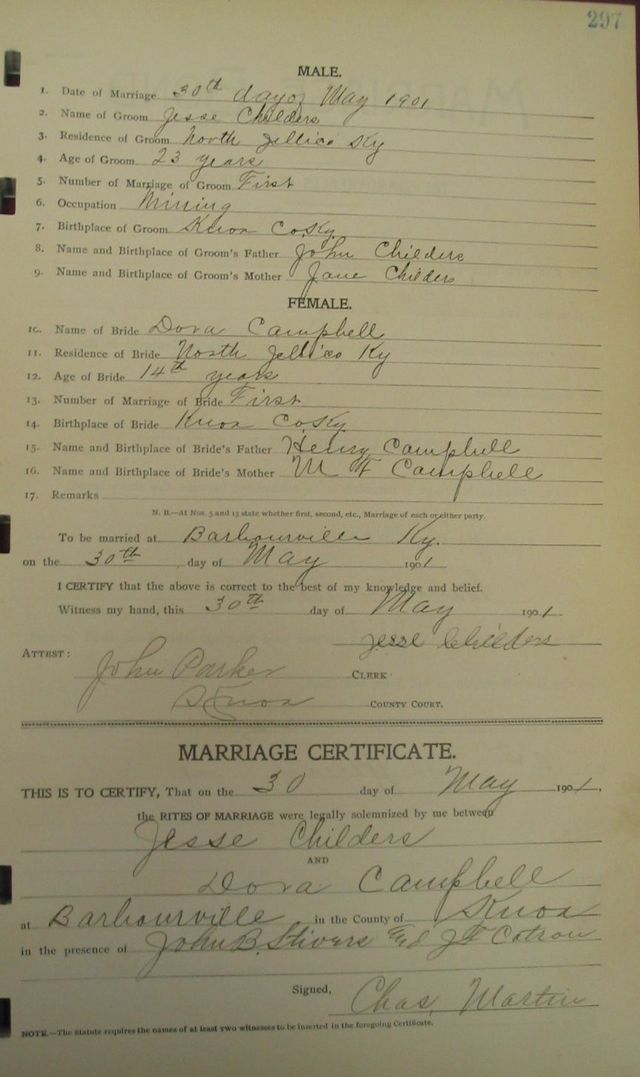 297
MALE.
1. Date of Marriage 30th day of May 1901
2. Name of Groom Jesse Childers
3. Residence of Groom North Jellico Ky
4. Age of Groom 23 years
5. Number of Marriage of Groom First
6. Occupation Mining
7. Birthplace of Groom Knox Co Ky
8. Name and Birthplace of Groom's Father John Childers
9. Name and Birthplace of Groom's Mother Jane Childers
FEMALE.
10. Name of Bride Dora Campbell
11. Residence of Bride North Jellico Ky
12. Age of Bride 14th years
13. Number of Marriage of Bride First
14. Birthplace of Bride Knox Co Ky
15. Name and Birthplace of Bride's Father Henry Campbell
16. Name and Birthplace of Bride's Mother M F Campbell
17. Remarks
N. B.—At Nos. 5 and 13 state whether first, second, etc., Marriage of each or either party.
To be married at Barbourville Ky.
on the 30th day of May 1901
I CERTIFY that the above is correct to the best of my knowledge and belief.
Witness my hand, this 30th day of May 1901
Jesse Childers
ATTEST:
John Parker CLERK
Knox COUNTY COURT.
MARRIAGE CERTIFICATE.
THIS IS TO CERTIFY, That on the 30 day of May 1901,
the RITES OF MARRIAGE were legally solemnized by me between
Jesse Childers
AND
Dora Campbell
at Barbourville in the County of Knox
in the presence of John B. Stivers J F Catron
Signed,
Chas, Martin
NOTE.—The Statute requires the names of at least two witnesses to be inserted in the foregoing Certificate.